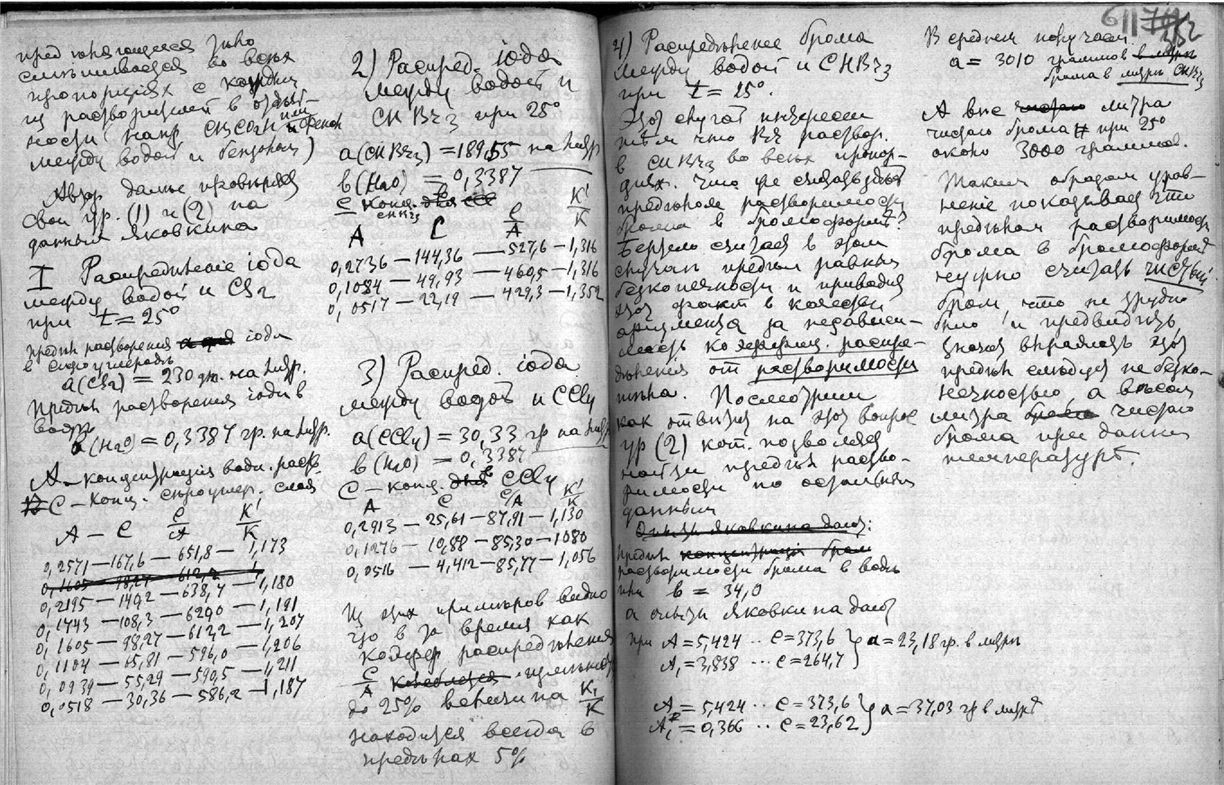 смешивается во всех
пропорциях с каждым
из растворителей в отдель-
ности (напр CH3CO2H или фенол
между водой и бензолом)
Автор далее проверяет
свои ур. (1) и (2) на
данных Яковкина
I Распределение iода
между водой и CS2
при t = 25°
предел растворения iода
в сероуглероде
a(CS2) = 230 гр. на литр.
Предел растворения iода в
воде
a(H2O) = 0,3387 гр. на литр.
A – концентрация водн. раств.
C – конц. сероуглер. слоя
A – C C/A K'/K
0,2571 – 167,6 – 651,8 – 1,173
0,2195 – 140,2 – 638,4 – 1,180
0,1743 – 108,3 – 620,0 – 1,191
0,1605 – 98,27 – 612,2 – 1,207
0,1104 – 65,81 – 596,0 – 1,206
0,0939 – 55,29 – 590,5 – 1,211
0,0518 – 30,36 – 586,2 – 1,187
2) Распред. iода
между водой и
CHBr3 при 25°
a(CHBr3) = 189,55 на литр
b(H2O) = 0,3387
C конц. в
CHBr3
A C C/A K'/K
0,2736 – 144,36 – 527,6 – 1,316
0,1084 – 49,93 – 460,5 – 1,316
0,0517 – 22,19 – 429,3 – 1,352
3) Распред. iода
между водой и CCl4
a(CCl4) = 30,33 гр на литр
b(H2O) = 0,3387
C – конц. в CCl4
A C C/A K'/K
0,2913 – 25,61 – 87,91 – 1,130
0,1276 – 10,88 – 85,30 – 1080
0,0516 – 4,412 – 85,77 – 1,056
Из этих примеров видно
что в то время как
коэффер распределения
C/A
до 25% величина K1/K
находится всегда в
пределах 5%
6117
252
4) Распределение брома
между водой и CHBr3
при t = 25°.
Этот случай интересен
тем что Br раствор.
в CHBr3 во всех пропор-
циях. Что же считать
пределом растворимости
брома в бромоформе?
Бертло считает в этом
случае предел равным
безконечности и приводит
этот факт в качестве
аргумента за независи-
мость коэффиц. распре-
деления от растворимости
тела. Посмотрим
как ответит на этот вопрос
ур (2) кот. позволяет
найти предел раство-
римости по остальным
данным
Опыты Яковкина дают:
предел
растворимости брома в воде
b = 34,0
а опыты Яковкина дают
при A = 5,424 .. C = 373,6 } a = 23,18 гр. в литре
A1 = 3,838 .. C = 264,7
A = 5,424 .. C = 373,6 } a = 37,03 гр в литре
A1 = 0,366 .. C = 23,62
В среднем получаем
a = 3010 граммов
брома в литре CHBr3
А вне литра
чистаго брома при 25°
около 3000 граммов.
Таким образом урав-
нение показывает что
пределом растворимости
брома в бромоформе
нужно считать чистый
бром что не трудно
было и предвидеть
значит выражать этот
предел следует не безко-
нечностью, а весом
литра чистаго
брома при данной
температуре.